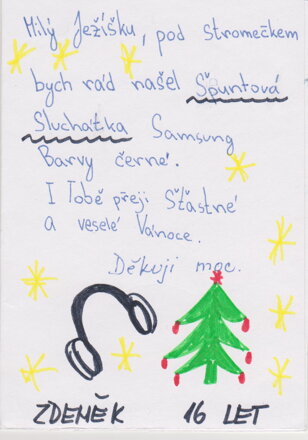 Milý Ježíšku, pod stromečkem
bych rád našel Špuntová
Sluchátka Samsung
Barvy černé.
I Tobě přeji Šťastné
a veselé Vánoce.
Děkuji moc.
ZDENĚK 16 LET